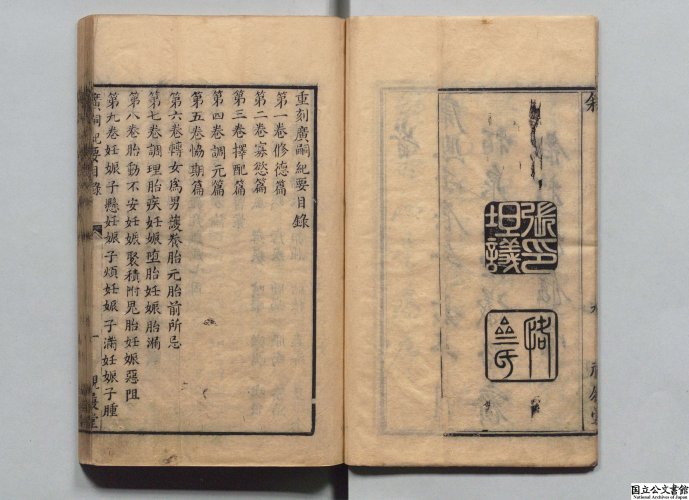 重刻廣嗣紀要目錄
第一卷修德篇
第二卷寡慾篇
第三卷擇配篇
第四卷調元篇
第五卷協期篇
第六卷轉女為男護養胎元胎前所忌
第七卷調理胎疾妊娠墮胎妊娠胎漏
第八卷胎動不安妊娠聚積附鬼胎妊娠惡阻
第九卷妊娠子懸妊娠子煩妊娠子滿妊娠子腫
廣嗣紀要目錄
一
張印坦議
国立公文書館
National Archives of Japan